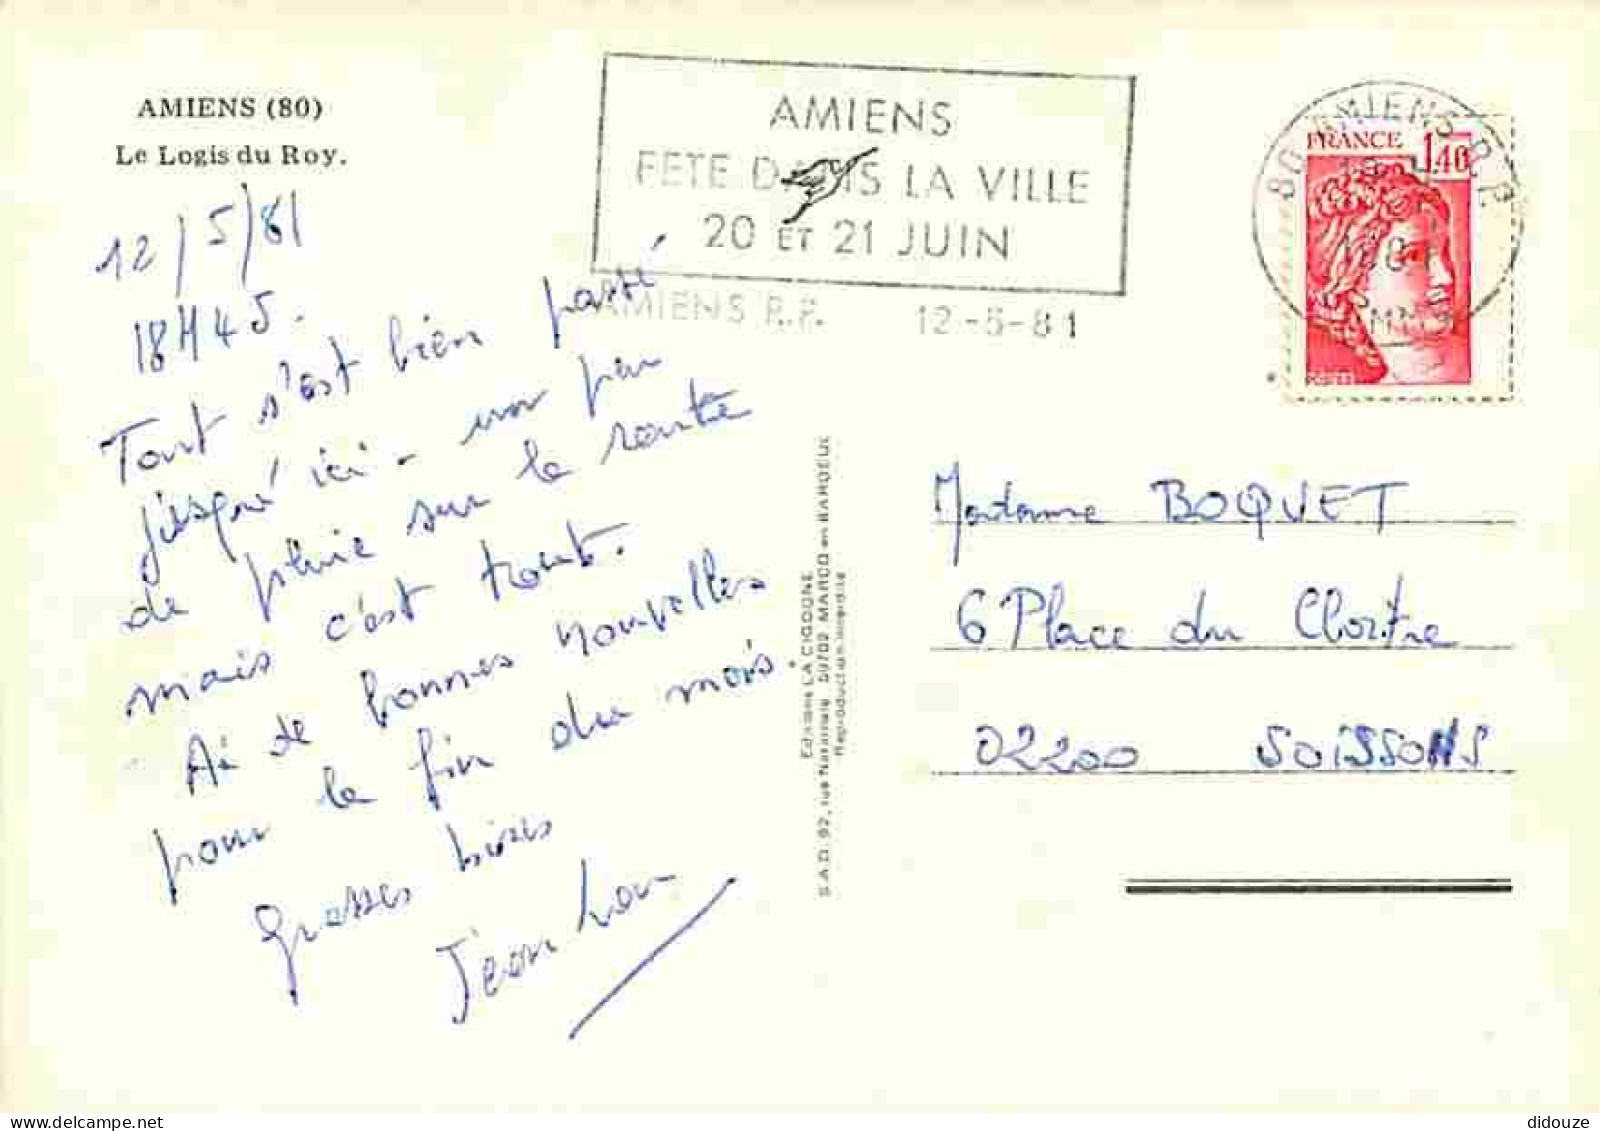 AMIENS (80)
Le Logis du Roy.
12/5/81
18H45.
Tout s'est bien passé
jusqu'ici - un peu
de pluie sur la route
mais c'est tout.
Ai de bonnes nouvelles
pour la fin du mois.
Grosses bises
Jean Lou
AMIENS
FETE DANS LA VILLE
20 ET 21 JUIN
AMIENS R.P. 12-5-81
80 AMIENS R.P.
FRANCE
1,40
POSTES
Editions LA CIGOGNE
S.A.D. 92, rue Nationale 59700 MARCQ en BAROEUL
Reproduction interdite
Madame BOQUET
6 Place du Cloître
02200 SOISSONS
didouze
delcampe.net